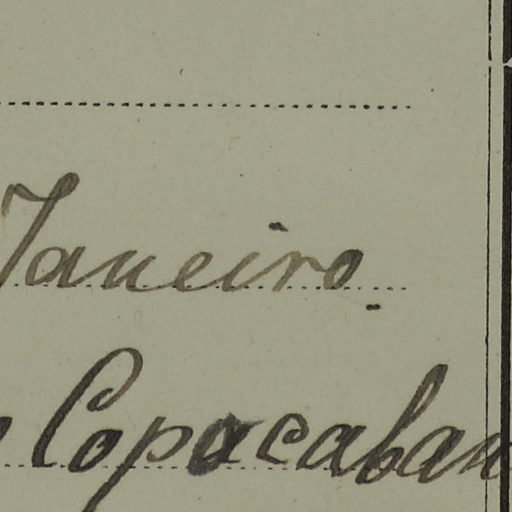 Janeiro.
Copacaban